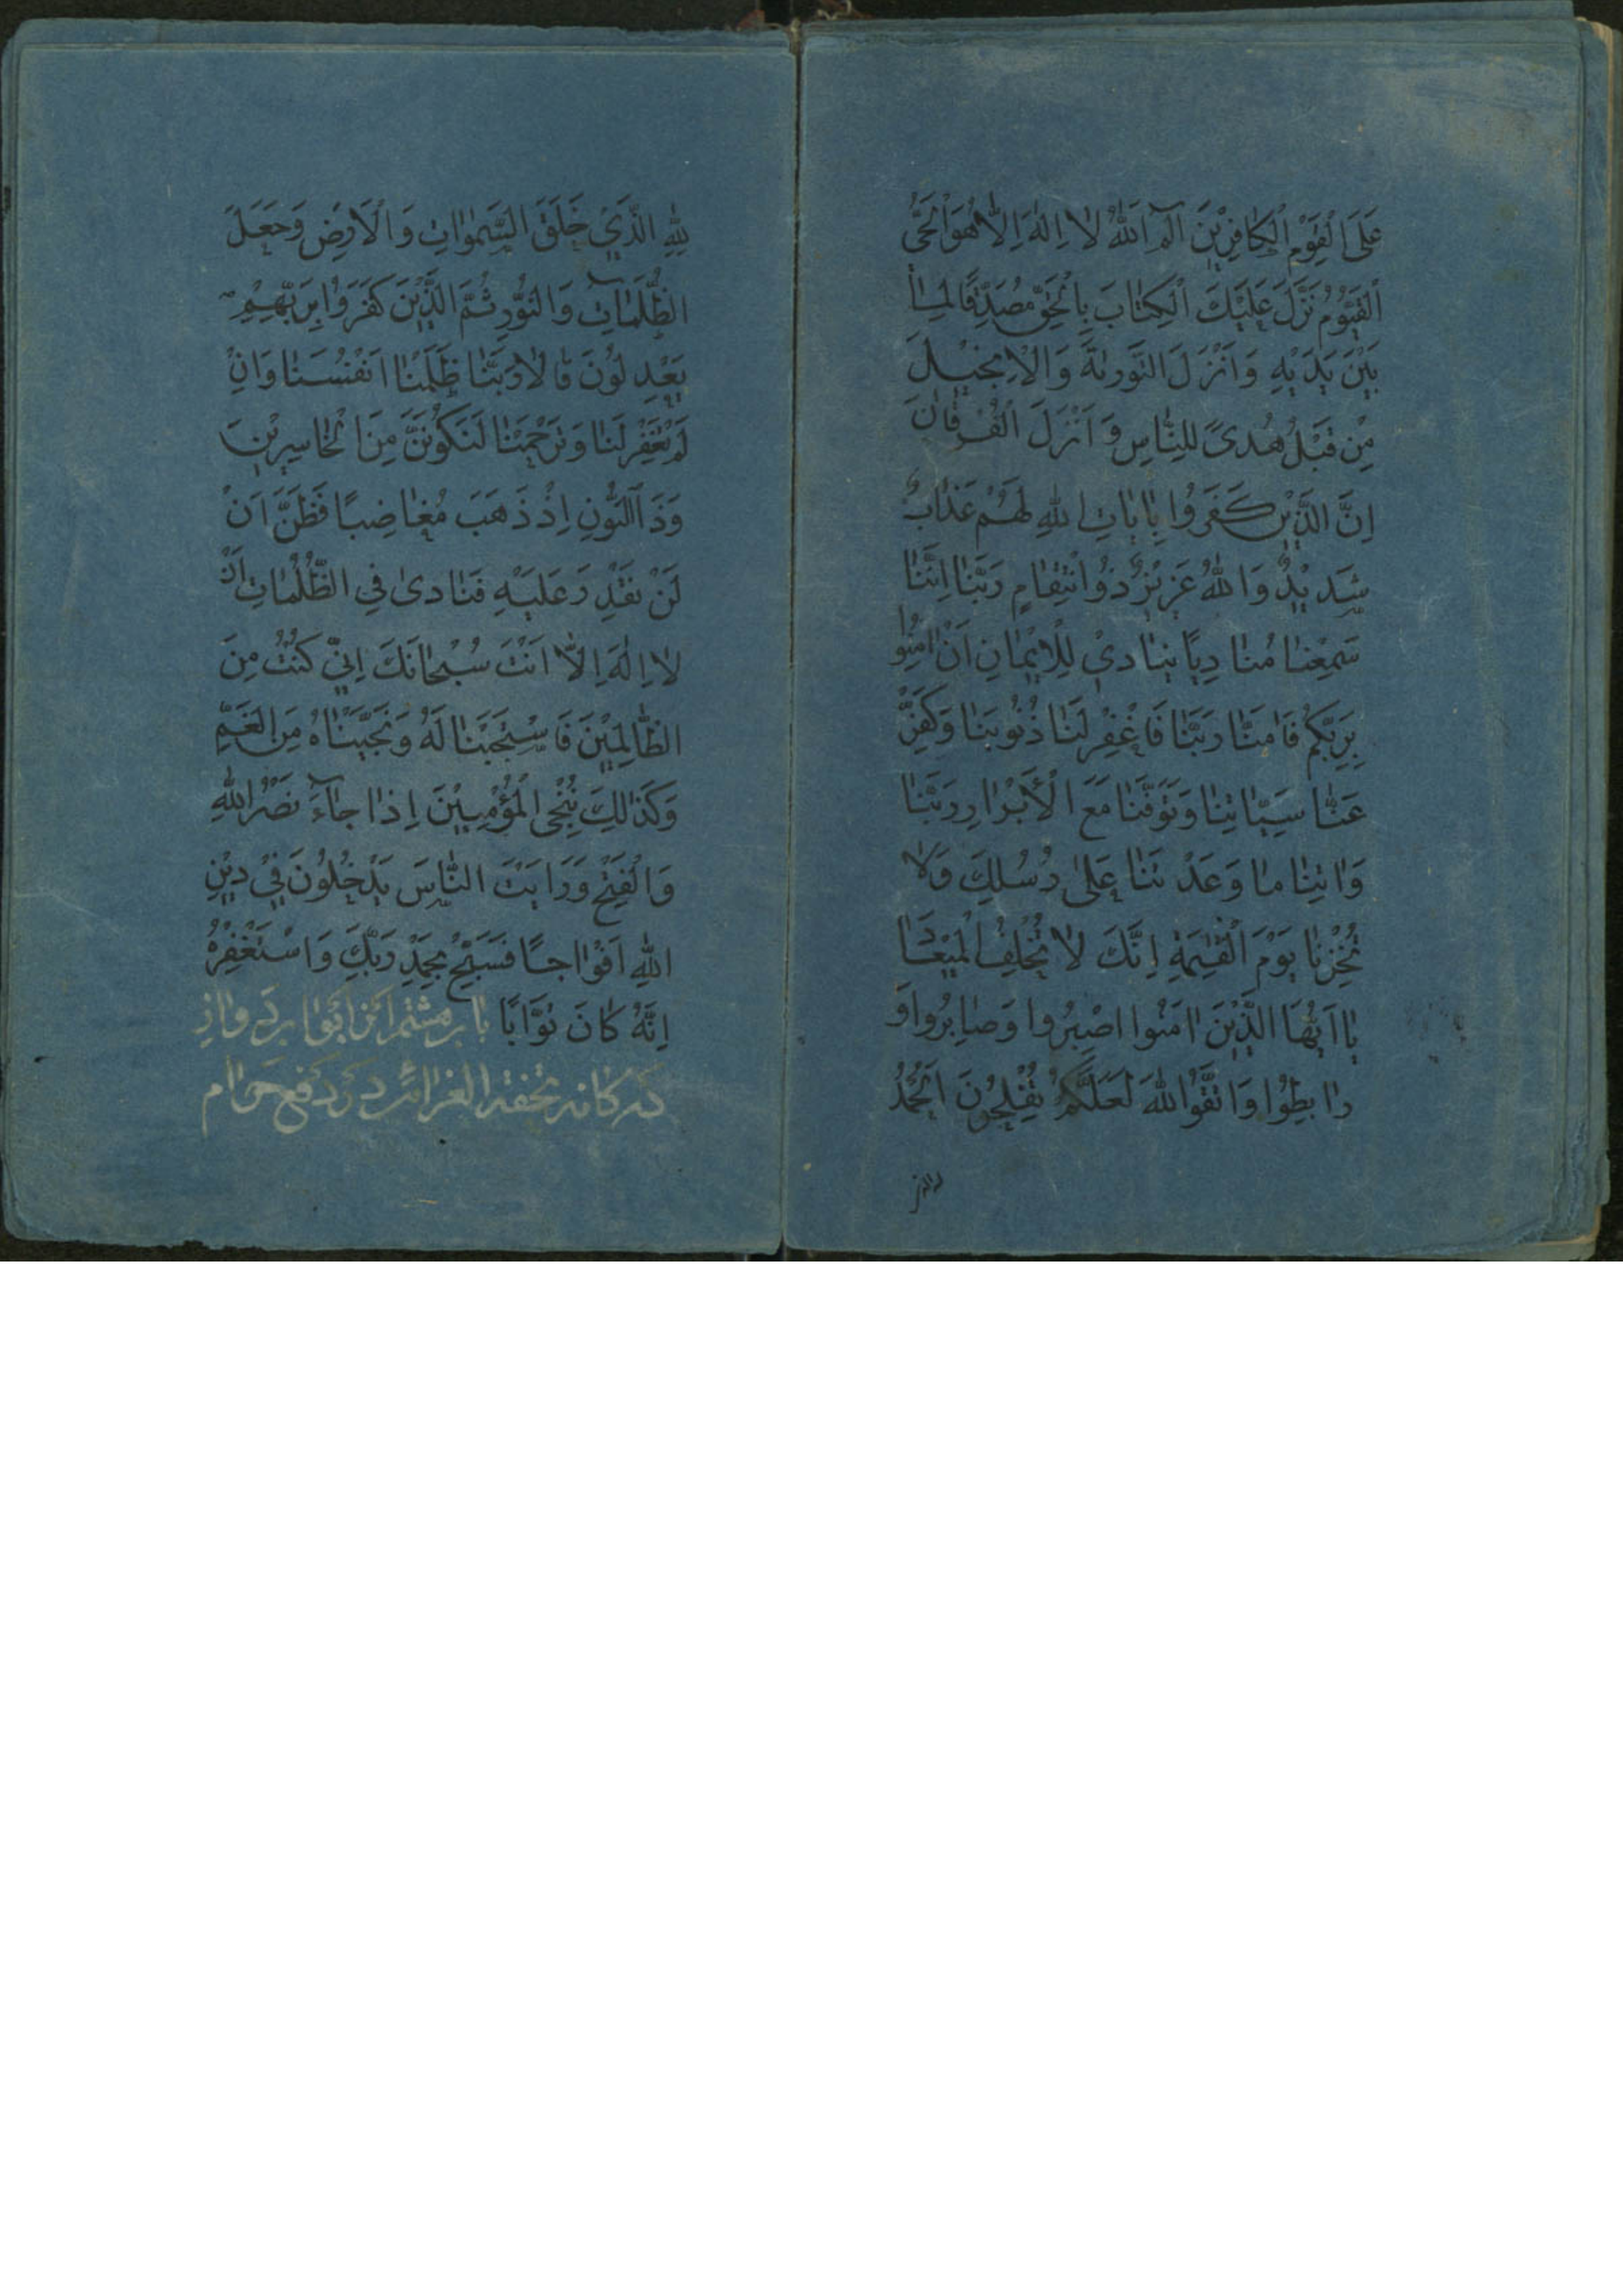 عَلَى الْقَوْمِ الْكٰافِرِيْنَ الٓمٓ اَللّٰهُ لٰا اِلٰهَ اِلَّا هُوَ الْحَىُّ
الْقَيُّوْمُ نَزَّلَ عَلَيْكَ الْكِتٰابَ بِالْحَقِّ مُصَدِّقًا لِمٰا
بَيْنَ يَدَيْهِ وَاَنْزَلَ التَّوْرٰىةَ وَالْاِنْجِيْلَ
مِنْ قَبْلُ هُدىً لِلنّٰاسِ وَاَنْزَلَ الْفُرْقٰانَ
اِنَّ الَّذِيْنَ كَفَرُوا بِاٰيٰاتِ اللّٰهِ لَهُمْ عَذٰابٌ
شَدِيْدٌ وَاللّٰهُ عَزِيْزٌ ذُوْ انْتِقٰامٍ رَبَّنٰا اِنَّنٰا
سَمِعْنٰا مُنٰادِيًا يُنٰادِىْ لِلْاِيْمٰانِ اَنْ اٰمِنُوا
بِرَبِّكُمْ فَاٰمَنّٰا رَبَّنٰا فَاغْفِرْ لَنٰا ذُنُوْبَنٰا وَكَفِّرْ
عَنّٰا سَيِّئٰاتِنٰا وَتَوَفَّنٰا مَعَ الْاَبْرٰارِ رَبَّنٰا
وَاٰتِنٰا مٰا وَعَدْتَنٰا عَلٰى رُسُلِكَ وَلٰا
تُخْزِنٰا يَوْمَ الْقِيٰمَةِ اِنَّكَ لٰا تُخْلِفُ الْمِيْعٰادَ
يٰا اَيُّهَا الَّذِيْنَ اٰمَنُوا اصْبِرُوا وَصٰابِرُوا وَ
رٰابِطُوْا وَاتَّقُوْا اللّٰهَ لَعَلَّكُمْ تُفْلِحُوْنَ اَلْحَمْدُ
لِلّٰهِ الَّذِيْ خَلَقَ السَّمٰوٰاتِ وَالْاَرْضَ وَجَعَلَ
الظُّلُمٰاتِ وَالنُّوْرَ ثُمَّ الَّذِيْنَ كَفَرُوْا بِرَبِّهِمْ
يَعْدِلُوْنَ قٰالٰا رَبَّنٰا ظَلَمْنٰا اَنْفُسَنٰا وَاِنْ
لَمْ تَغْفِرْ لَنٰا وَتَرْحَمْنٰا لَنَكُوْنَنَّ مِنَ الْخٰاسِرِيْنَ
وَذَا النُّوْنِ اِذْ ذَهَبَ مُغٰاضِبًا فَظَنَّ اَنْ
لَنْ نَقْدِرَ عَلَيْهِ فَنٰادىٰ فِي الظُّلُمٰاتِ اَنْ
لٰا اِلٰهَ اِلّٰا اَنْتَ سُبْحٰانَكَ اِنّيْ كُنْتُ مِنَ
الظّٰالِمِيْنَ فَاسْتَجَبْنٰا لَهُ وَنَجَّيْنٰاهُ مِنَ الْغَمِّ
وَكَذٰلِكَ نُنْجِى الْمُؤْمِنِيْنَ اِذٰا جٰاۤءَ نَصْرُ اللّٰهِ
وَالْفَتْحُ وَرَاَيْتَ النّٰاسَ يَدْخُلُوْنَ فِيْ دِيْنِ
اللّٰهِ اَفْوٰاجًا فَسَبِّحْ بِحَمْدِ رَبِّكَ وَاسْتَغْفِرْهُ
اِنَّهُ كٰانَ تَوّٰابًا